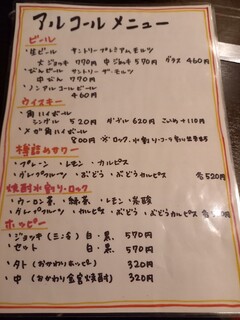 アルコールメニュー
ビール
・生ビール サントリープレミアムモルツ
大ジョッキ 770円 中ジョッキ 570円 グラス 460円
・びんビール サントリー ザ・モルツ
中びん 770円
・ノンアルコールビール
460円
ウイスキー
・角ハイボール
シングル 520 ダブル 620 こいめ +110円
・メガ角ハイボール 800円
サワー
・プレーン ・レモン ・カルピス
・グレープフルーツ ・ぶどう ・ぶどうカルピス 各520円
焼酎水割り・ロック
・ウーロン茶 ・緑茶 ・レモン ・炭酸
・グレープフルーツ ・カルピス ・ぶどう ・ぶどうカルピス
ホッピー
・ジョッキ(三冷) 白・黒 570円
・セット 白・黒 570円
・外(おかわりホッピー) 320円
・中(おかわり金宮焼酎) 320円